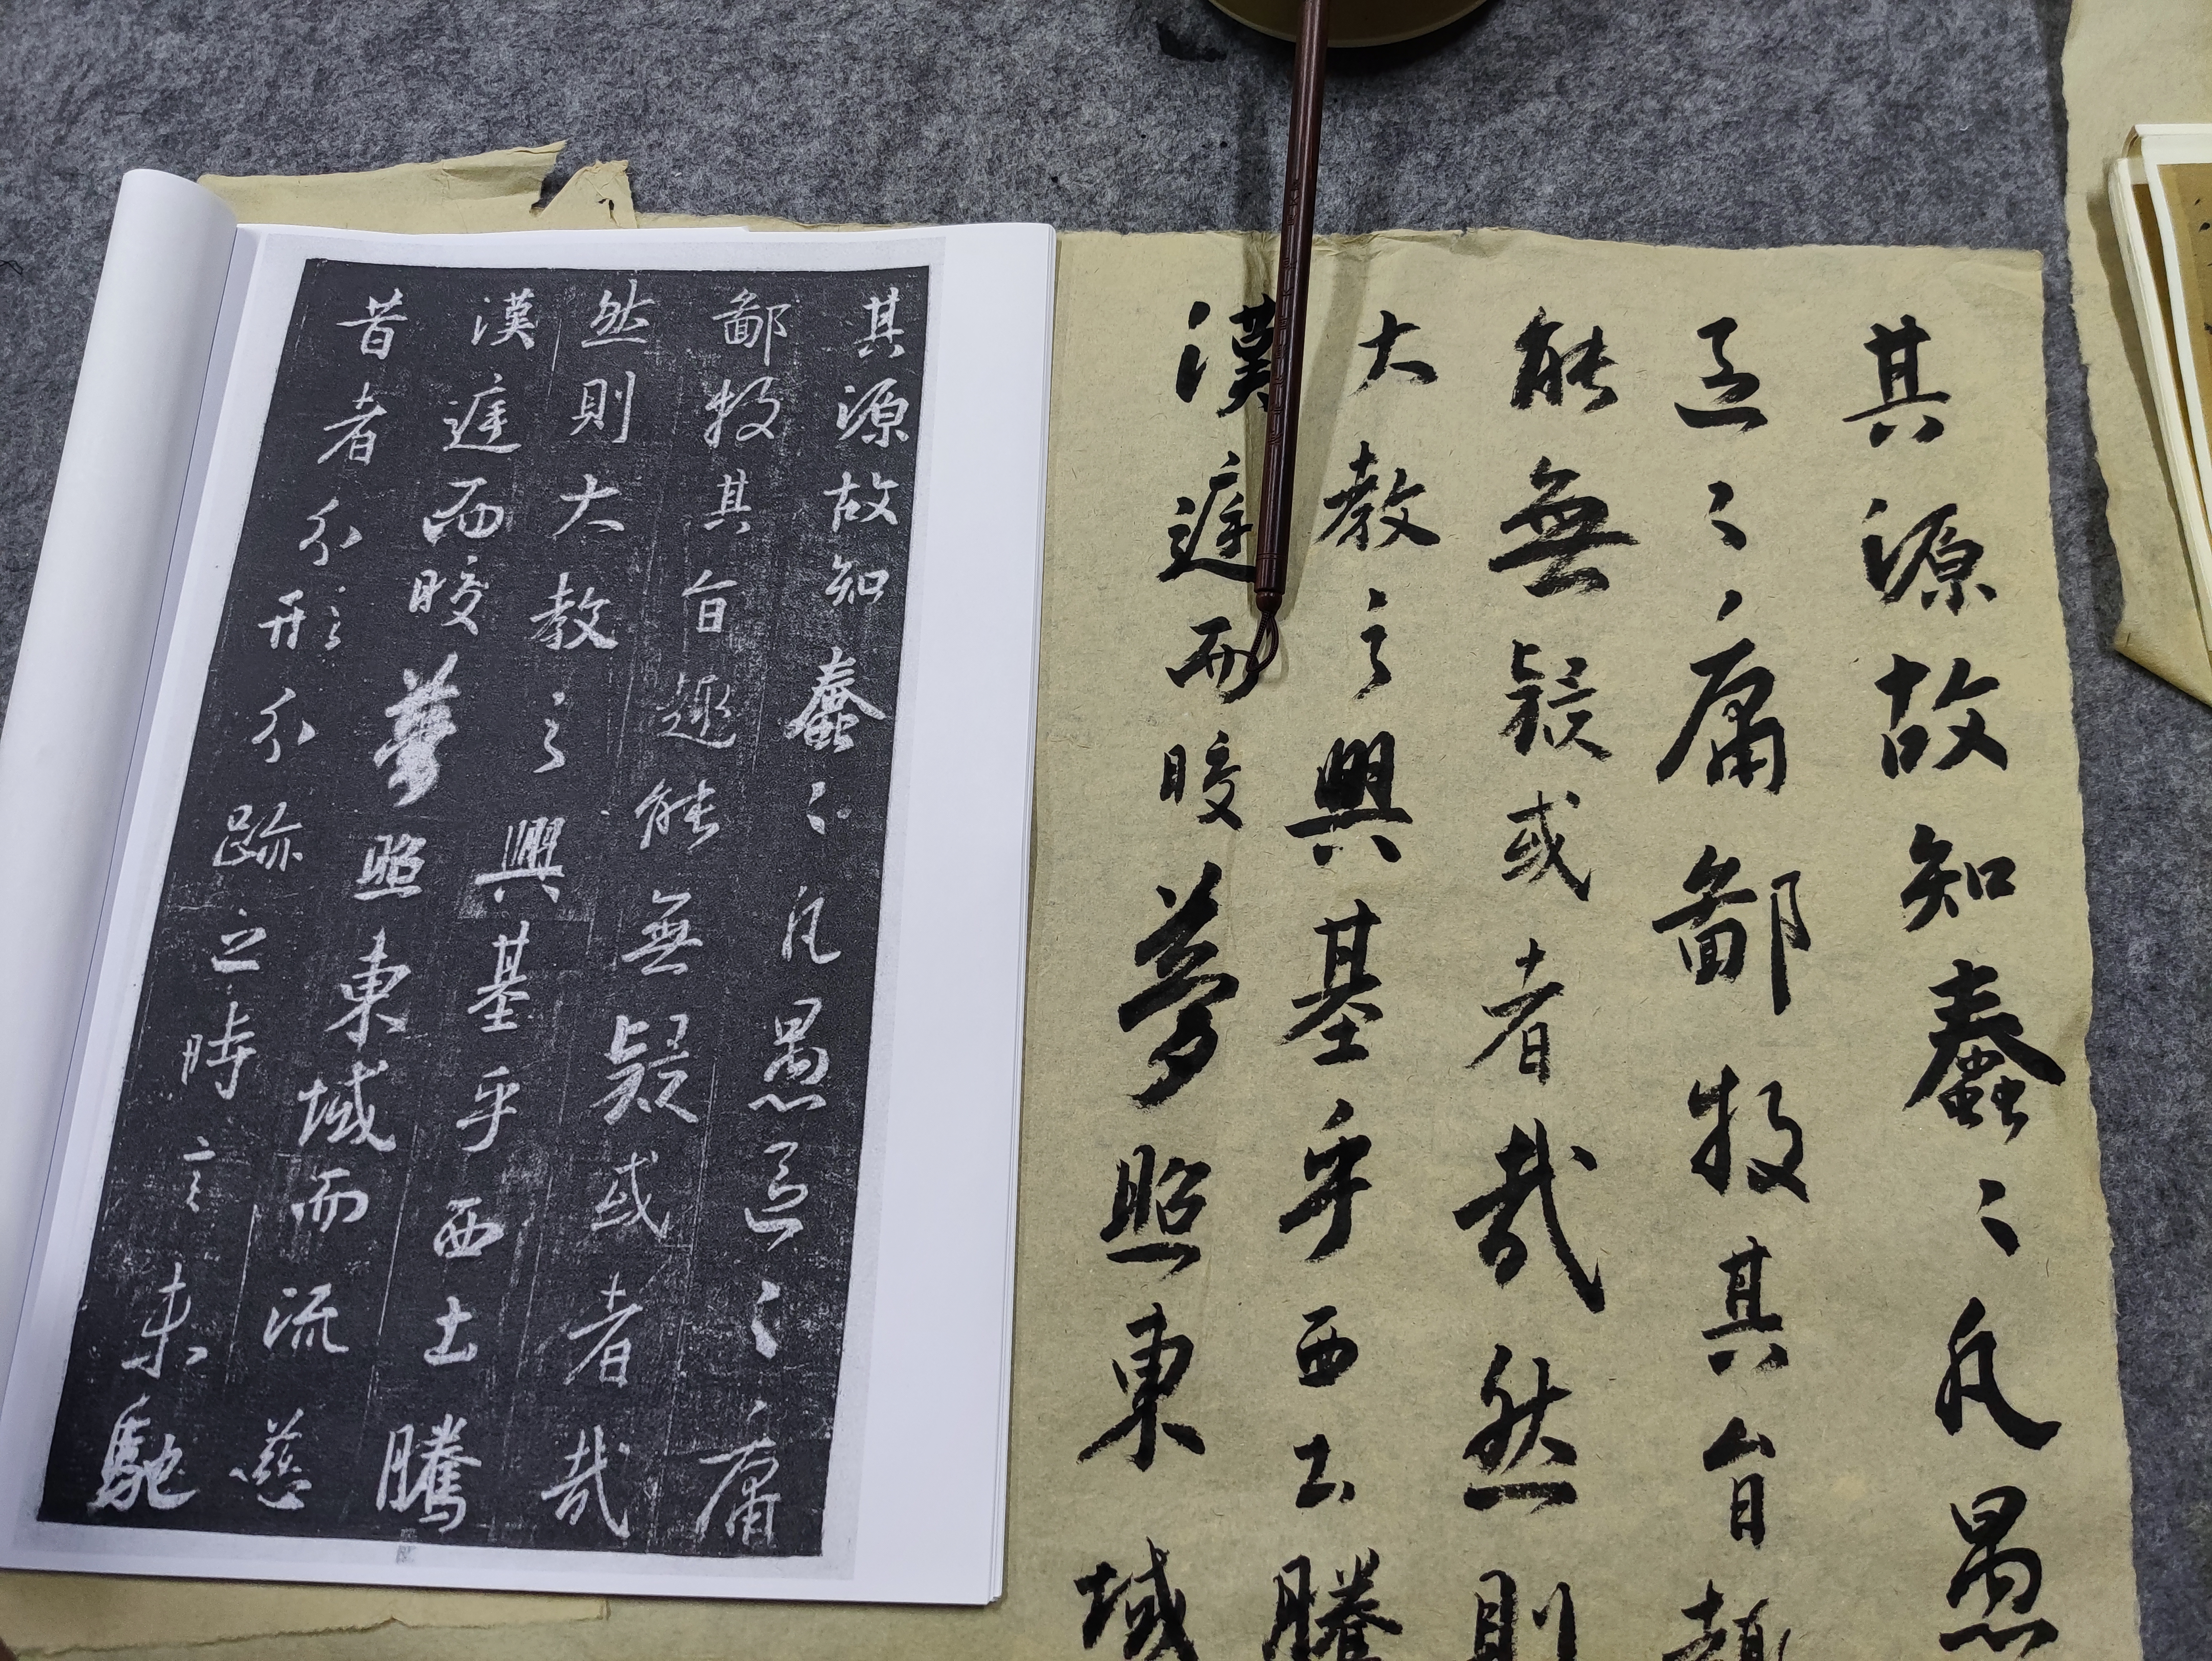 其源故知蠢〻凡愚區〻庸
鄙投其旨趣能無疑或者哉
然則大教之興基乎西土騰
漢庭而皎夢照東域而流慈
昔者分形分跡之時言未馳
其源故知蠢〻凡愚
區〻庸鄙投其旨趣
能無疑或者哉然則
大教之興基乎西土騰
漢庭而皎夢照東域